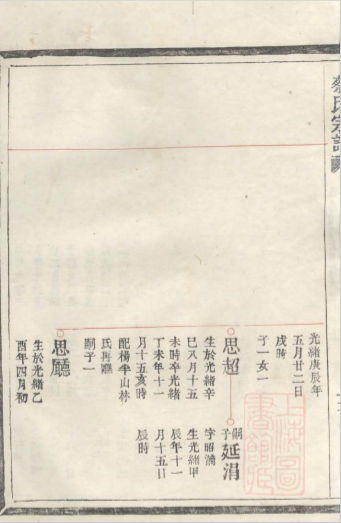 蔡氏宗譜
光緒庚辰年
五月廿二日
戌時
子一亥一
思超
生於光緒辛
巳八月十五
未時卒光緒
丁未年十一
月十五亥時
配楊半山林
氏再醮
嗣子一
嗣子延涓
字昭滴
生光緒甲
辰年十一
月十五日
辰時
思廳
生於光緒乙
酉年四月初
上海圖書館藏